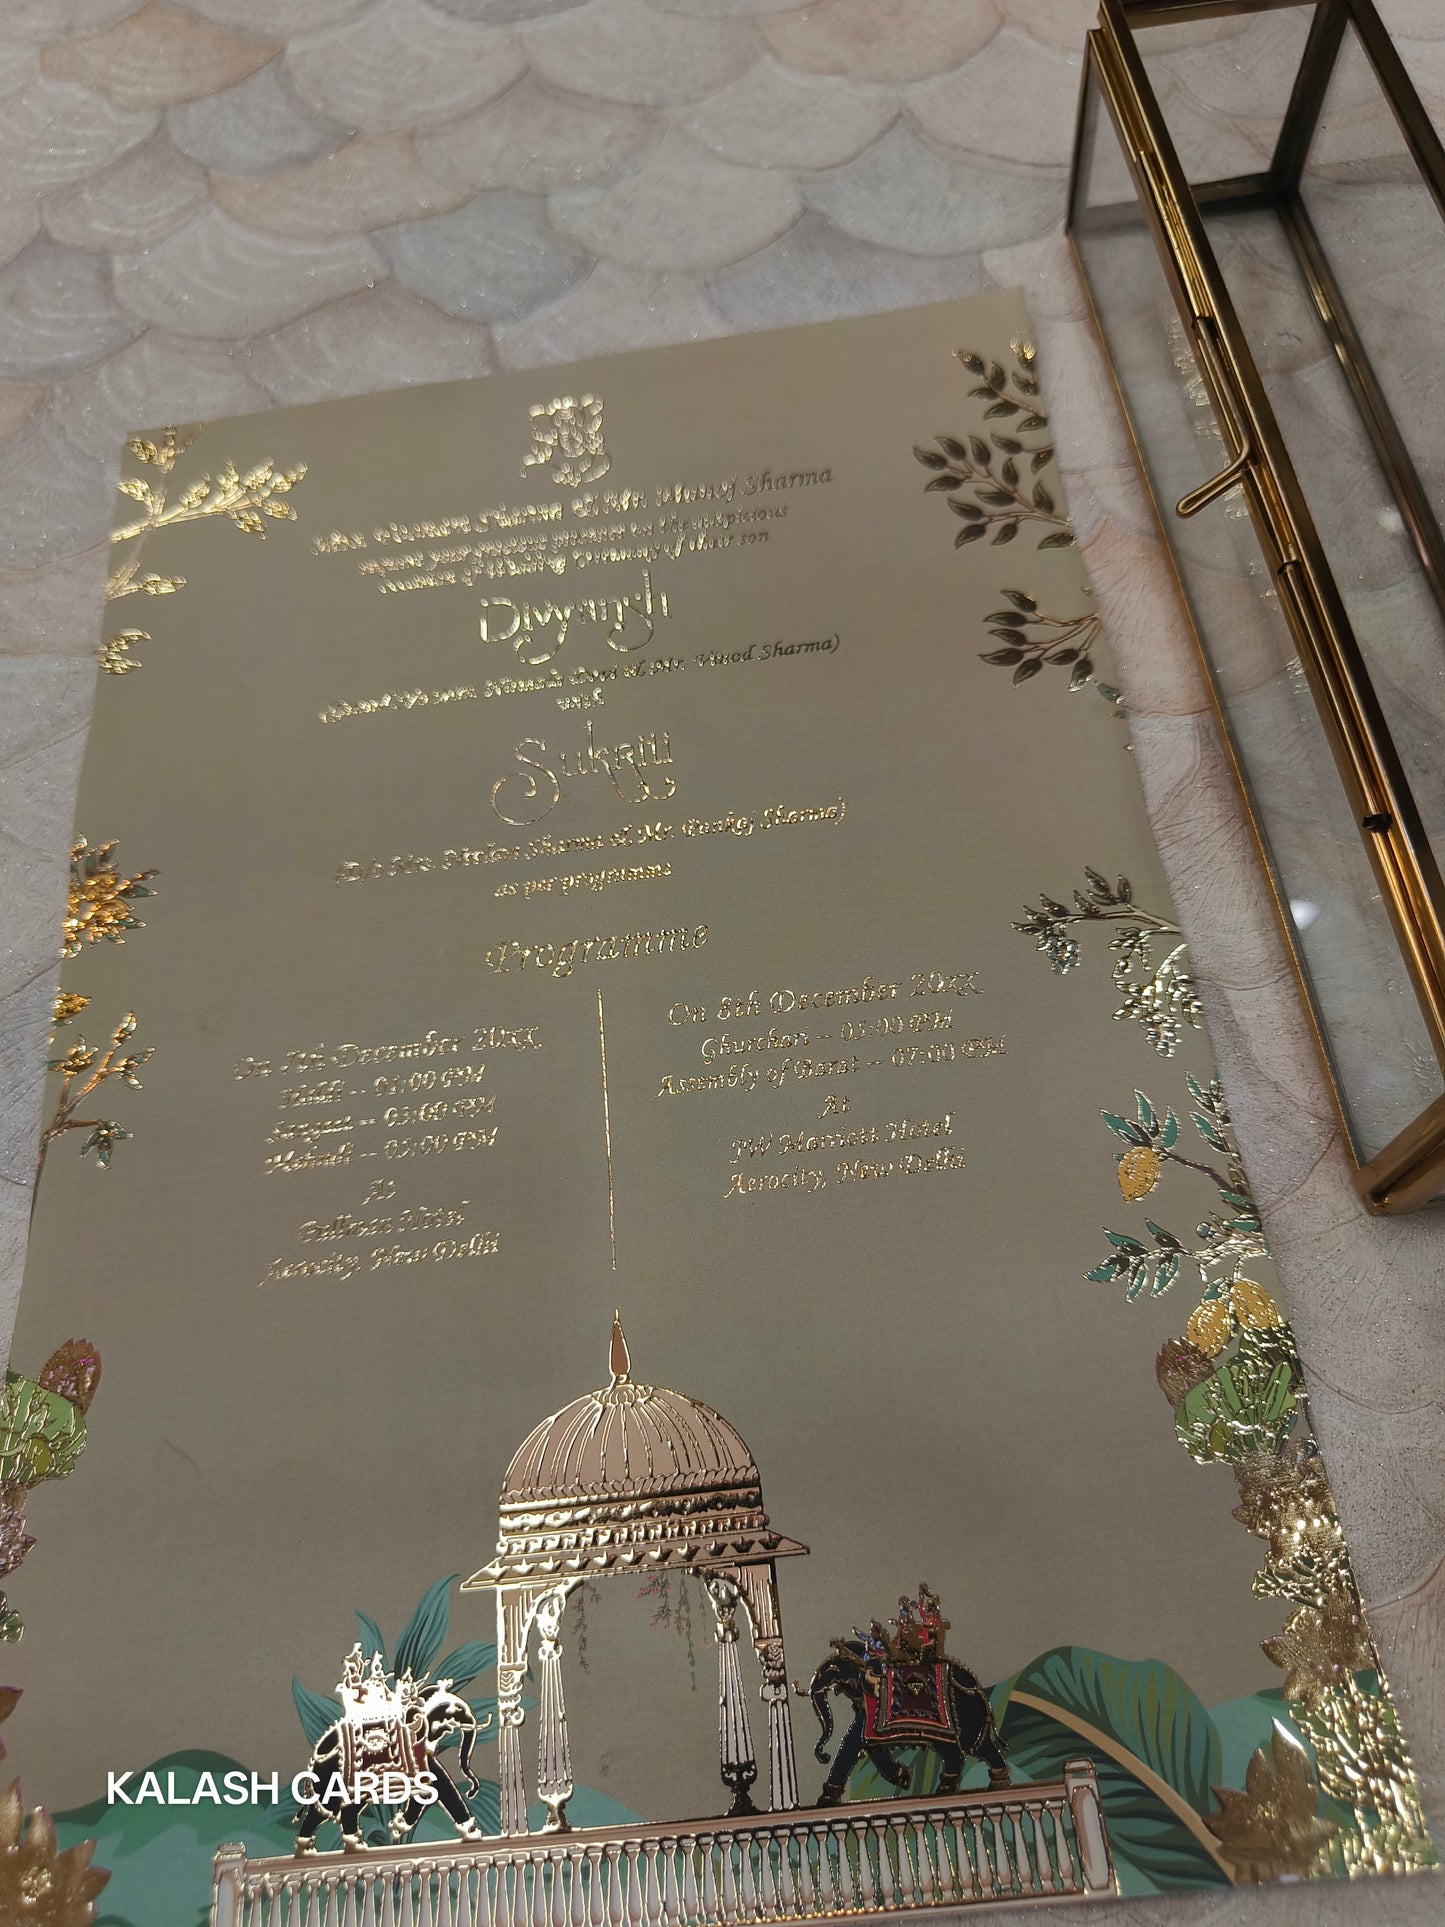 Sharma
request your gracious presence on the auspicious
occasion of Wedding Ceremony of their son
Divyansh
Devi & Mr. Vinod Sharma)
with
Sukriti
(D/o Mrs. Sharma & Mr. Pankaj Sharma)
as per programme
Programme
On 7th December 20XX
Haldi – 01:00 PM
Sangeet – 03:00 PM
Mehndi – 05:00 PM
At
Pullman Hotel
Aerocity, New Delhi
On 8th December 20XX
Ghurchari – 05:00 PM
Assembly of Barat – 07:00 PM
At
JW Marriott Hotel
Aerocity, New Delhi
KALASH CARDS